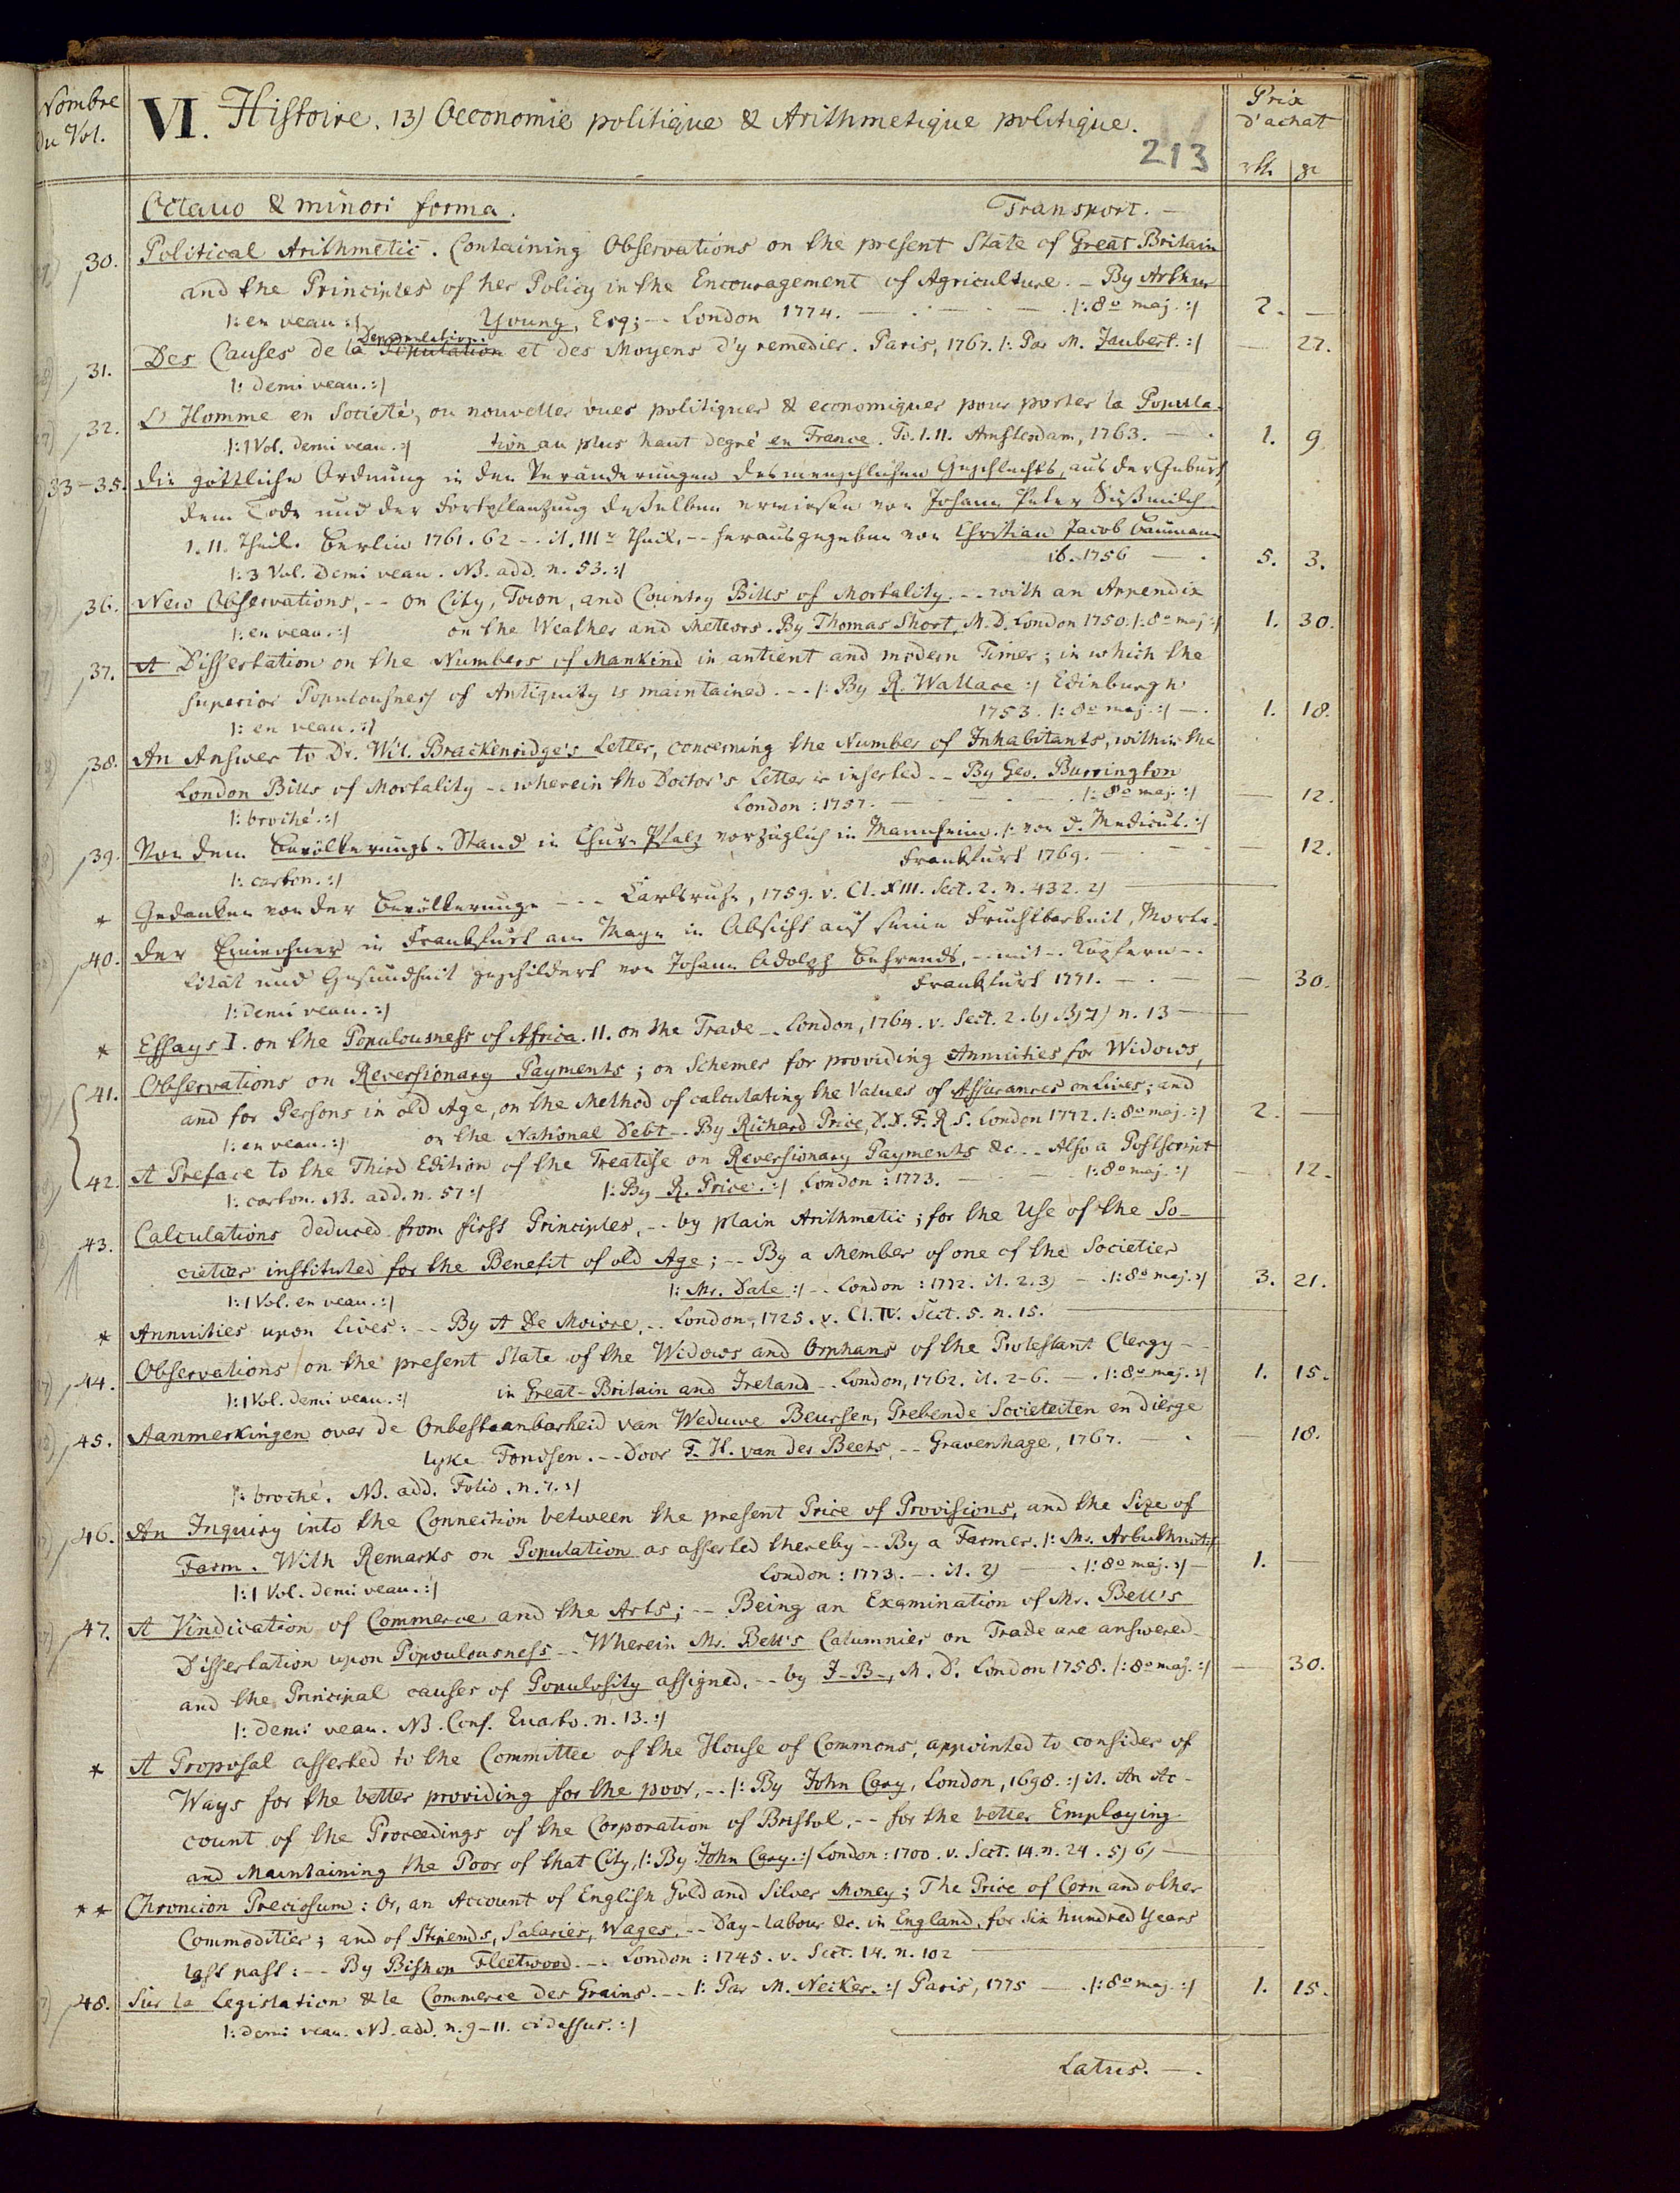 Nombre
du Vol.
VI. Histoire. 13) Oeconomie politique & Arithmetique politique.
Prix
d'achat
213
rth. gr
Octavo & minori forma. Transport. —
30. Political Arithmetic. Containing Observations on the present State of Great Britain
and the Principles of her Policy in the Encouragement of Agriculture. – By Arthur
|: en veau :| Young, Esq; -- London 1774. — . — . — . |: 8o maj. :| 2. —
31. Des Causes de la Population Depopulation et des Moyens d'y remedier. Paris, 1767. |: Par M. Jaubert. :| — 27.
|: demi veau. :|
32. L'Homme en Societé, ou nouvelles vues politiques & economiques pour porter la Popula-
|: 1 Vol. demi veau. :| tion au plus haut degré en France. To. I. II. Amsterdam, 1763. — . 1. 9.
33-35. Die göttliche Ordnung in den Veränderungen des menschlichen Geschlechts, aus der Geburt,
dem Tode und der Fortpflantzung desselben erwiesen von Johann Peter Süßmilch
I. II. Theil. Berlin 1761. 62 -- it. IIIr Theil. -- herausgegeben von Christian Jacob Baumann
ib. 1756 — . 5. 3.
|: 3 Vol. demi veau. NB. add. n. 53. :|
36. New Observations, -- on City, Town, and Country Bills of Mortality. -- with an Appendix
|: en veau. :| on the Weather and Meteors. By Thomas Short, M. D. London 1750. |: 8o maj :| 1. 30.
37. A Dissertation on the Numbers of Mankind in antient and modern Times; in which the
superior Populousness of Antiquity is maintained. -- |: By R. Wallace :| Edinburgh
1753. |: 8o maj. :| — . 1. 18.
|: en veau. :|
38. An Answer to Dr. Wil. Brackenridge's Letter, concerning the Number of Inhabitants, within the
London Bills of Mortality -- wherein the Doctor's Letter is inserted -- By Geo. Burrington
London: 1757. — . — . — . |: 8o maj. :| — 12.
|: broché. :|
39. Von dem Bevölkerungs-Stand in Chur-Pfalz vorzüglich in Mannheim. |: von d. Medicus. :|
Frankfurt 1769. — . — — 12.
|: carton. :|
* Gedanken von der Bevölkerung. --- Carlsruhe, 1759. v. Cl. XIII. Sect. 2. n. 432. 2) —
40. Der Einwohner in Frankfurt am Mayn in Absicht auf seine Fruchtbarkeit, Morta-
lität und Gesundheit geschildert von Johann Adolph Behrends, -- mit -- Kupfern --
Frankfurt 1771. — . — — 30.
|: demi veau. :|
* Essays I. on the Populousness of Africa. II. on the Trade -- London, 1764. v. Sect. 2. 6) B) 7) n. 13 —
41. Observations on Reversionary Payments; on Schemes for providing Annuities for Widows,
and for Persons in old Age, on the Method of calculating the Values of Assurances on Lives; and
|: en veau. :| on the National Debt -- By Richard Price, D. D. F. R. S. London 1772. |: 8o maj. :| 2. —
42. A Preface to the Third Edition of the Treatise on Reversionary Payments &c. -- Also a Postscript
|: carton. NB. add. n. 57 :| |: By R. Price. :| London: 1773. — . — |: 8o maj. :| — 12.
43. Calculations deduced from first Principles, -- by plain Arithmetic; for the Use of the So-
cieties instituted for the Benefit of old Age; -- By a Member of one of the Societies
|: 1 Vol. en veau. :| |: Mr. Dale :| -- London: 1772. it. 2. 3) — . |: 8o maj. :| 3. 21.
* Annuities upon Lives: -- By A De Moivre. -- London, 1725. v. Cl. IV. Sect. 5. n. 15. —
44. Observations on the present State of the Widows and Orphans of the Protestant Clergy --
|: 1 Vol. demi veau. :| in Great-Britain and Ireland -- London, 1762. it. 2-6. — . |: 8o maj. :| 1. 15.
45. Aanmerkingen over de Onbestaanbarheid van Weduwe Beursen, Prebende Societeiten en dierge
lyke Fondsen. -- Door F. H. van der Beets, -- Gravenhage, 1767. — . — 18.
|: broché. NB. add. Folio. n. 7. :|
46. An Inquiry into the Connection between the present Price of Provisions, and the Size of
Farm. With Remarks on Population as asserted thereby -- By a Farmer. |: Mr. Arbuthnot :|
London: 1773. -- it. 2) — . |: 8o maj. :| — 1. —
|: 1 Vol. demi veau. :|
47. A Vindication of Commerce and the Arts; -- Being an Examination of Mr. Bell's
Dissertation upon Popoulousness -- Wherein Mr. Bell's Calumnies on Trade are answered --
and the Principal causes of Populosity assigned. -- by J-B-, M. D. London 1758. |: 8o maj. :| — 30.
|: demi veau. NB. Conf. Quarto. n. 13. :|
* A Proposal asserted to the Committee of the House of Commons, appointed to consider of
Ways for the better providing for the poor, -- |: By John Cary, London, 1698. :| it. An Ac-
count of the Proceedings of the Corporation of Bristol, -- for the better Employing
and Maintaining the Poor of that City, |: By John Cary. :| London: 1700. v. Sect. 14. n. 24. 5) 6) —
** Chronicon Preciosum: Or, an Account of English Gold and Silver Money; The Price of Corn and other
Commodities; and of Stipends, Salaries, Wages, -- Day-labour &c. in England, for six hundred Years
last past: -- By Bishop Fleetwood. -- London: 1745. v. Sect. 14. n. 102 —
48. Sur la Legislation & le Commerce des Grains. -- |: Par M. Necker. :| Paris, 1775 — . |: 8o maj. :| 1. 15.
|: demi veau. NB. add. n. 9-11. cidessus. :|
Latus. — .